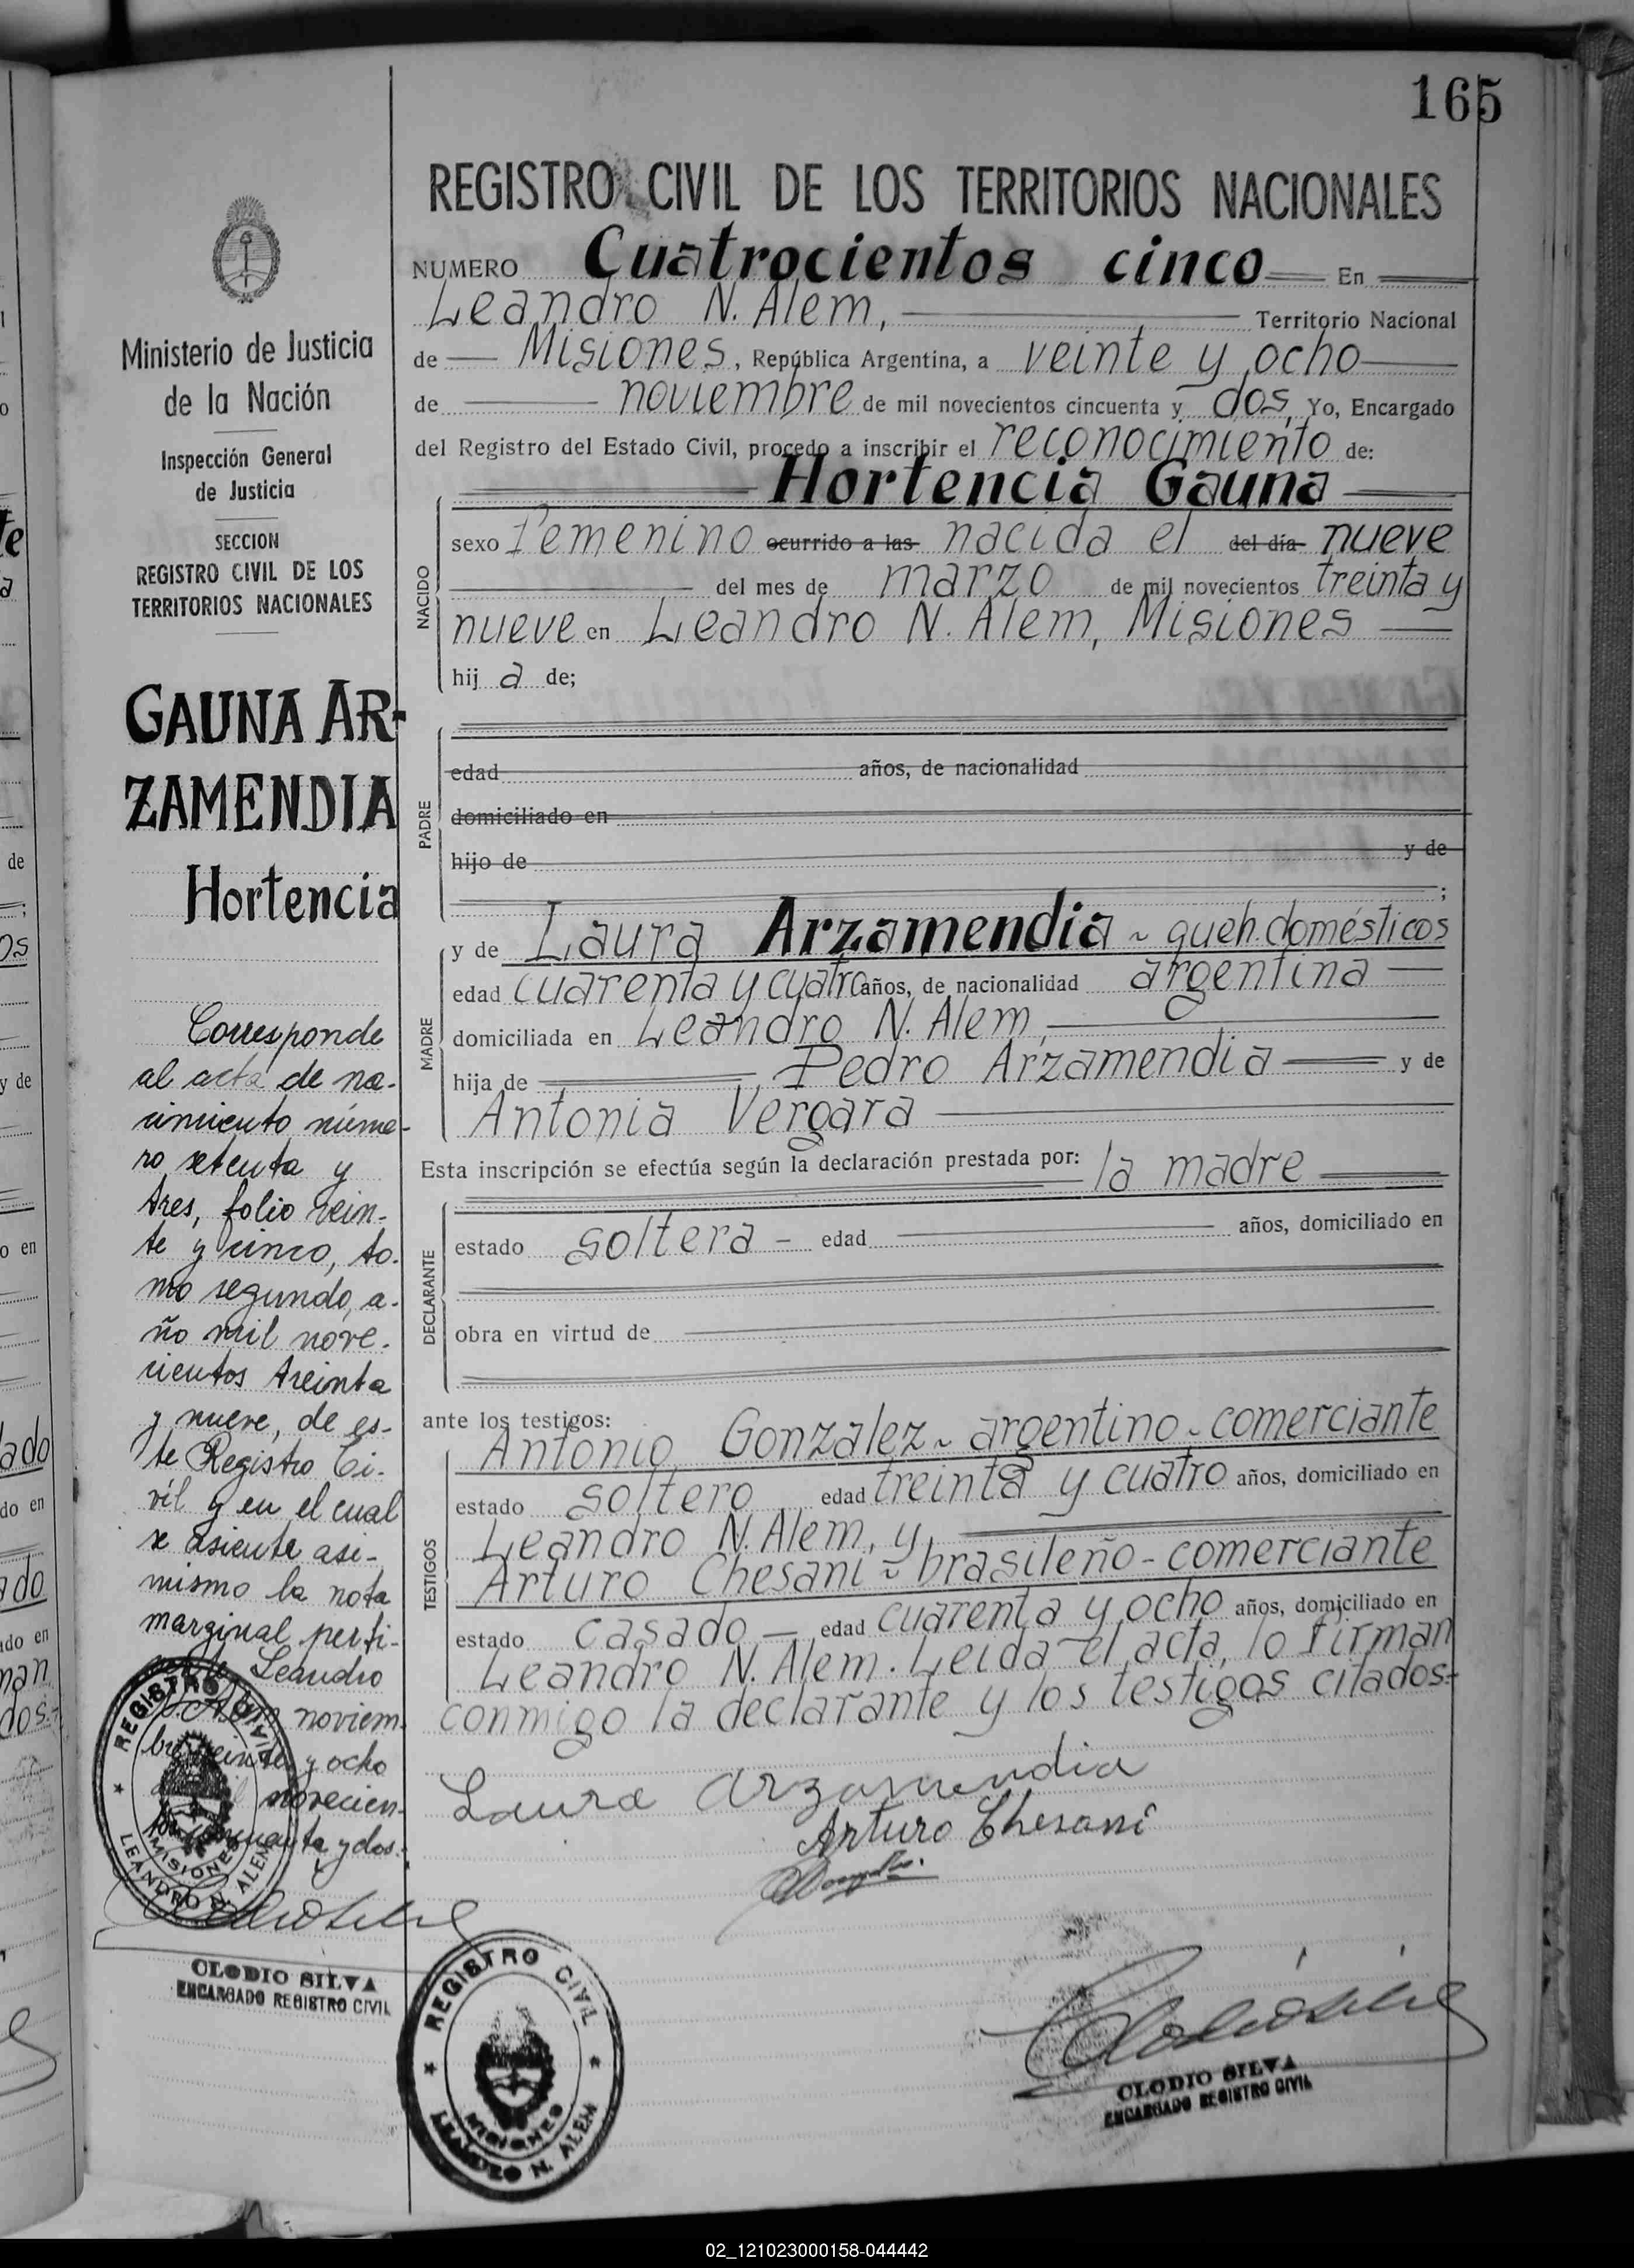 165
REGISTRO CIVIL DE LOS TERRITORIOS NACIONALES
NUMERO Cuatrocientos cinco En
Leandro N. Alem, Territorio Nacional
de Misiones, República Argentina, a veinte y ocho
de noviembre de mil novecientos cincuenta y dos, Yo, Encargado
del Registro del Estado Civil, procedo a inscribir el reconocimiento de:
Hortencia Gauna
NACIDO
sexo Femenino ocurrido a las nacida el del día nueve
del mes de marzo de mil novecientos treinta y
nueve en Leandro N. Alem, Misiones
hij a de;
PADRE
edad años, de nacionalidad
domiciliado en
hijo de y de
;
MADRE
y de Laura Arzamendia ~ queh. domésticos
edad cuarenta y cuatro años, de nacionalidad argentina
domiciliada en Leandro N. Alem,
hija de Pedro Arzamendia y de
Antonia Vergara
Esta inscripción se efectúa según la declaración prestada por: la madre
DECLARANTE
estado soltera - edad años, domiciliado en
obra en virtud de
ante los testigos:
TESTIGOS
Antonio Gonzalez ~ argentino - comerciante
estado soltero edad treinta y cuatro años, domiciliado en
Leandro N. Alem, y
Arturo Chesani ~ brasileño - comerciante
estado casado - edad cuarenta y ocho años, domiciliado en
Leandro N. Alem. Leida el acta, lo firman
conmigo la declarante y los testigos citados:-
Laura Arzamendia
Arturo Chesani
CLODIO SILVA
ENCARGADO REGISTRO CIVIL
REGISTRO CIVIL
MISIONES
LEANDRO N. ALEM
Ministerio de Justicia
de la Nación
Inspección General
de Justicia
SECCION
REGISTRO CIVIL DE LOS
TERRITORIOS NACIONALES
GAUNA AR-
ZAMENDIA
Hortencia
Corresponde
al acta de na-
cimiento núme-
ro setenta y
tres, folio vein-
te y cinco, to-
mo segundo, a-
ño mil nove-
cientos treinta
y nueve, de es-
te Registro Ci-
vil y en el cual
se asiente asi-
mismo la nota
marginal perti-
Leandro
N. Alem noviem-
bre veinte y ocho
novecien-
tos cincuenta y dos.
REGISTRO CIVIL
MISIONES
LEANDRO N. ALEM
CLODIO SILVA
ENCARGADO REGISTRO CIVIL
02_121023000158-044442